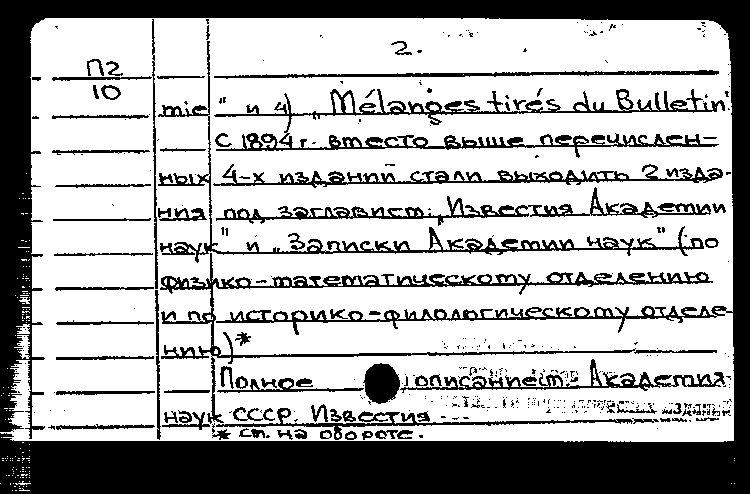 2.
П2
10
mie" и 4) „Mélanges tirés du Bulletin".
С 1894 г. вместо выше перечислен-
ных 4-х изданий стали выходить 2 изда-
ния под заглавием: „Известия Академии
наук" и „Записки Академии наук" (по
физико-математическому отделению
и по историко-филологическому отделе-
нию)*
Полное описание см.: Академия
наук СССР. Известия ---
* см. на обороте.